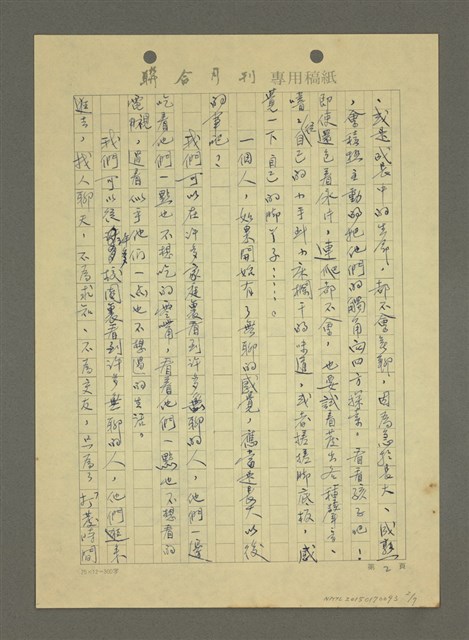 聯合月刊 專用稿紙
、或是成長中的生命，都不會無聊，因為急於長大、成熟
，會積極主動的把他們的觸角向四方探索，看看孩子吧！
即使還包著尿片，連爬都不會，也要試著發出各種聲音、
嚐嚐自己的小手和小床欄干的味道，或者搓搓腳底板，感
覺一下自己的腳ㄚ子……。
一個人，如果開始有了無聊的感覺，應當是長大以後
的事吧？
我們可以在許多家庭裏看到許多無聊的人，一邊
吃著他們一點也不想吃的零嘴，看著他們一點也不想看的
電視，過著似乎他們一點也不想過的生活。
我們可以從許多校園裏看到許多無聊的人，他們逛來
逛去，找人聊天，不為求知、不為交友，只為了打發時間
第2頁
25×12=300字
2/7